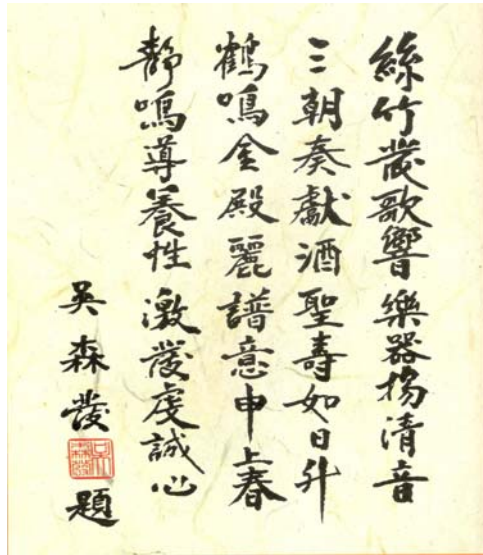 絲竹發歌響樂器揚清音
三朝奏獻酒聖壽如日升
鶴鳴金殿麗譜意申上春
靜鳴導養性激發虔誠心
吳森發題